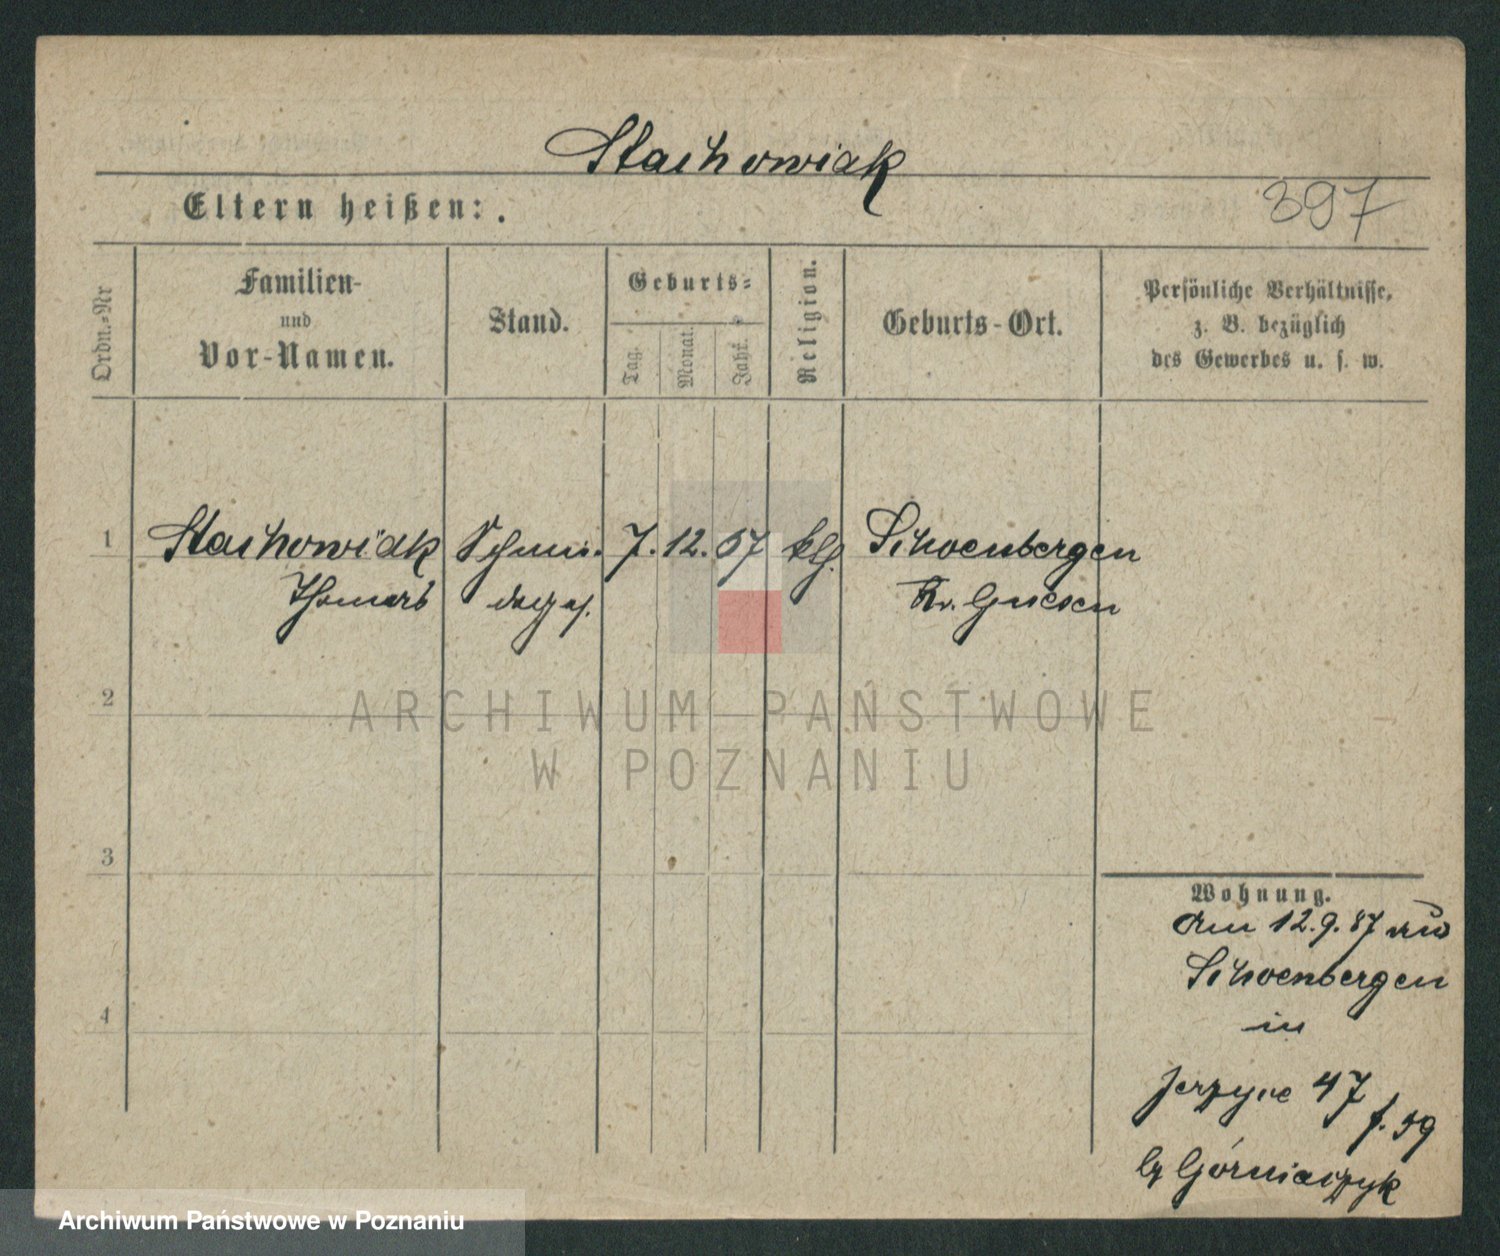 Stachowiak
Eltern heißen: .
397
Ordn.-Nr
Familien-
und
Vor-Namen.
Stand.
Geburts-
Tag.
Monat.
Jahr.
Religion.
Geburts-Ort.
Persönliche Verhältnisse,
z. B. bezüglich
des Gewerbes u. s. w.
1 Stachowiak Schmi- 7. 12. 67 ktlh. Schoenbergen
Thomas Kr. Gnesen
2
3
4
Wohnung.
Am 12.9.87 aus
Schoenbergen
in
Jerzyce 47
f. 59
bz Górniaczyk
ARCHIWUM PAŃSTWOWE
W POZNANIU
Archiwum Państwowe w Poznaniu